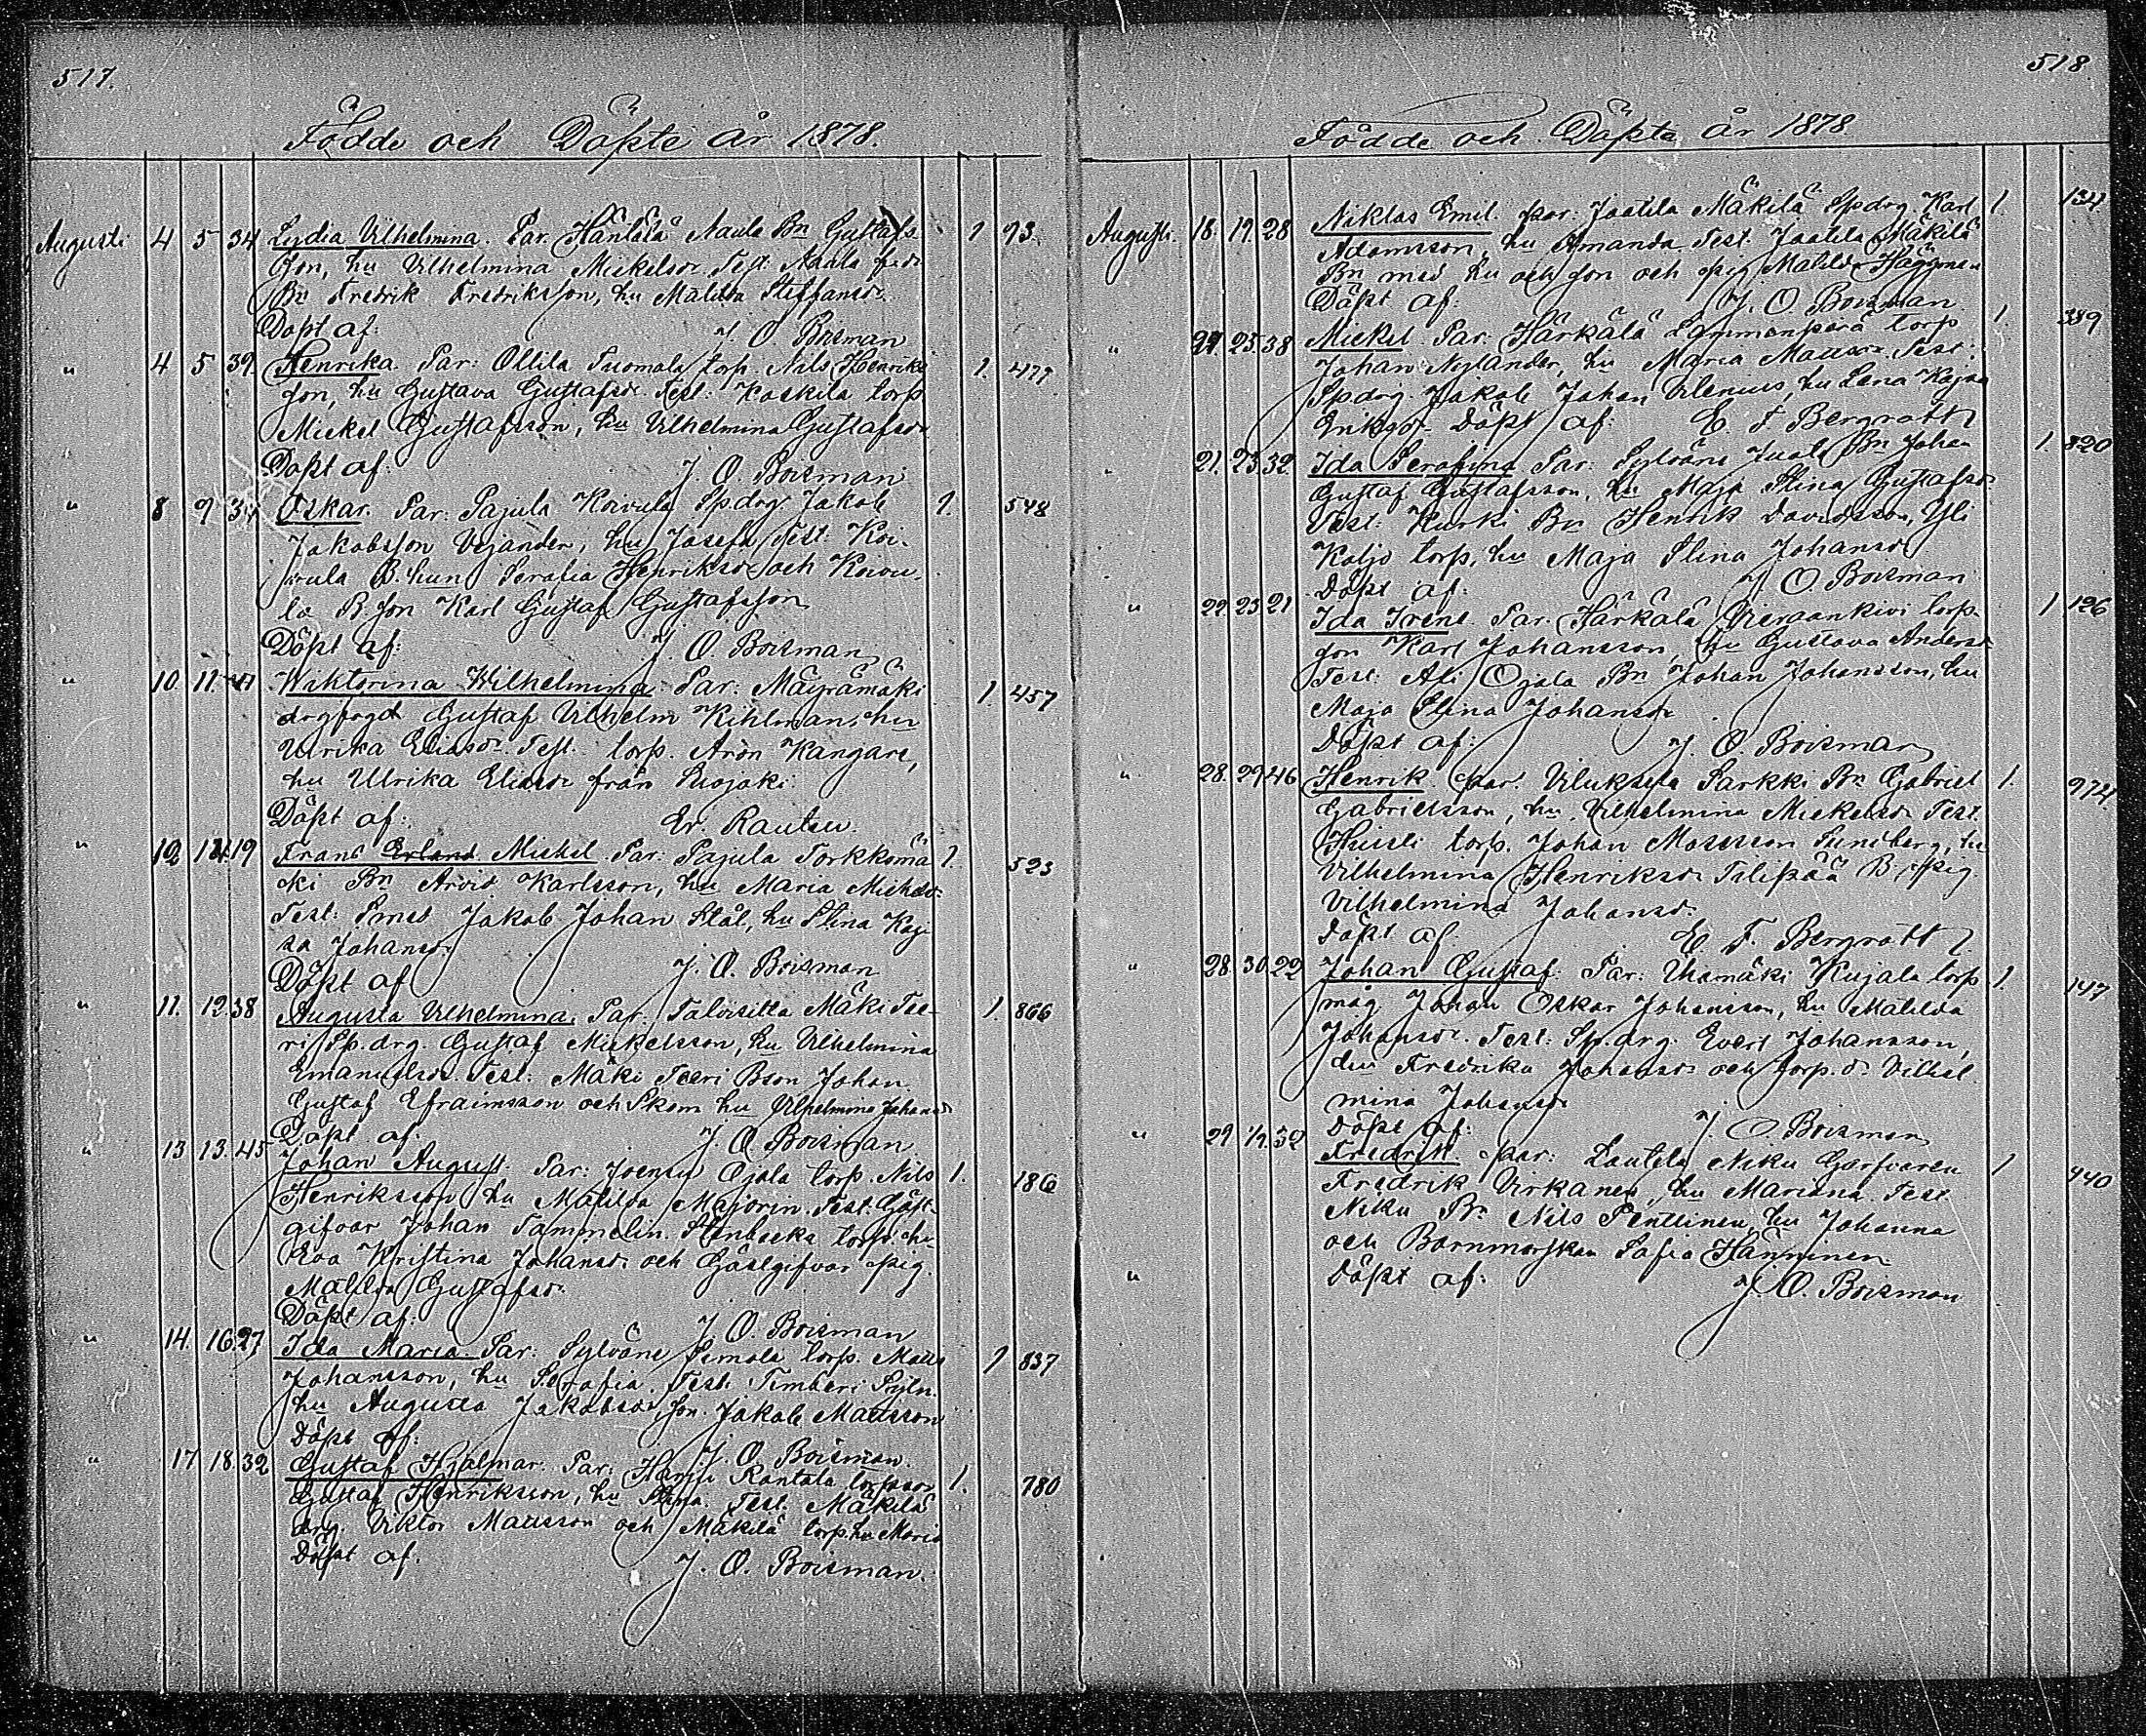 517.
Födde och Döpte År 1878.
Augusti 4 5 34 Lydia Vilhelmina. Par. Hänlälä Naula Bn Gustafs 1 93.
son, hu Vilhelmina Mickelsdr. Test. Naula
Bn Fredrik Fredriksson, hu Matilda Steffansdr.
Döpt af: J. O. Boisman
" 4 5 39. Henrika. Par: Ollila Tuomola torp. Nils Henriks 1. 477
son, hu Gustava Gustafsdr. Test: Koskila torp
Mickel Gustafsson, hu Vilhelmina Gustafsdr
Döpt af: J. O. Boisman
" 8 9 34 Oskar. Par: Pajula Koivula Sp.drg. Jakob 1. 548
Jakobsson Vejander, hu Josefa Test: Koi-
vula B. hun Serafia Henriksdr och Koivu-
la B. son Karl Gustaf Gustafsson
Döpt af: J. O. Boisman
" 10. 11. 41 Wiktorina Wilhelmina Par: Mäyrämäki 1. 457
drgfogd Gustaf Vilhelm Kihlman, hu
Ulrika Eliasdr. Test. torp. Aron Kangare,
hu Ulrika Eliasdr från Suojoki.
Döpt af: Er. Rautsu.
" 12 14 19 Frans Erland Mickel. Par: Pajula Torkkomä 1. 523
ki Bn Arvid Karlsson, hu Maria Michelsdr.
Test: Smed Jakob Johan Stål, hu Stina Kaj
sa Johansdr.
Döpt af J. O. Boisman
" 11. 12. 38 Augusta Vilhelmina. Par. Taloisilta Mäki Tee- 1. 866
ri Sp.drg. Gustaf Mickelsson, hu Vilhelmina
Emanuelsdr. Test: Mäki Teeri Bson Johan
Gustaf Efraimsson och Skom. hu Vilhelmina Johansdr
Döpt af. J. O Boisman
" 13 13. 45 Johan August. Par: Joensuu Ojala torp. Nils 1. 186
Henriksson hu Matilda Majorin. Test: Gäst-
gifvar Johan Tammelin. Stenbacka torp. hu
Eva Kristina Johansdr och Gästgifvar pig.
Matilda Gustafsdr.
Döpt af: J. O. Boisman
" 14. 16. 27 Ida Maria. Par. Sylvänä Simola torp. Matts 1 837
Johansson, hu Serafia. Test: Timberi Sytn.
hu Augusta Jakobsdr, son Jakob Mattsson
Döpt af: J. O. Boisman.
" 17 18. 32 Gustaf Hjalmar. Par: Harju Rantala torpson 1. 780
Gustaf Henriksson, hu Stina. Test. Mäkilä
drg. Viktor Mattsson och Mäkilä torp. hu Maria
Döpt af. J. O. Boisman.
518
Födde och Döpta År 1878
Augusti. 18. 19. 28 Niklas Emil. par. Jaatila Mäkilä Spdrg Karl 1. 134
Adamsson, hu Amanda. Test: Jaatila Mäkilä
Bn med hu och son och pig. Matilda Häggman
Döpt af: J. O. Boisman
" 24. 25. 38 Mickel. Par: Härkälä Lammenperä torp 1. 389
Johan Nylander, hu Maria Mattsdr. Test:
Spdrg. Jakob Johan Vilenius, hu Lena Kajsa
Eriksdr. Döpt af: E. F. Bergroth
" 21. 23. 32 Ida Serafina Par: Sylvänä Juala Bn Johan 1. 820
Gustaf Gustafsson, hu Maja Stina Gustafsdr
Test: Kurki Bn Henrik Davidsson, Yli
Koljo torp, hu Maja Stina Johansdr
Döpt af: J. O. Boisman
" 22. 23 21 Ida Irene. Par. Härkälä Vieraankivi torp- 1 126
son Karl Johansson, hu Gustava Andersdr
Test: Ali Ojala Bn Johan Johansson, hu
Maja Stina Johansdr.
Döpt af: J. O. Boisman
" 28. 29 46 Henrik. par. Viluksela Sarkki Bn Gabriel 1. 974
Gabrielsson, hu Vilhelmina Mickelsdr Test.
Huisti torp. Johan Mosesson Sundberg, hu
Vilhelmina Henriksdr Tilipää B. pig
Vilhelmina Johansdr.
Döpt af E. F. Bergroth
" 28. 30. 22 Johan Gustaf. Par: Uhamäki Kujala torp 1. 147
måg Johan Oskar Johansson, hu Matilda
Johansdr. Test: Sp.drg. Evert Johansson,
hu Fredrika Johansdr och torp. d. Vilhel
mina Johansdr
Döpt af: J. O. Boisman
" 29 1/9. 32 Fredrik. par: Lautela Niku Garfvaren 1 440
Fredrik Virkanen, hu Mariana. Test
Niku Bn Nils Penttinen, hu Johanna
och Barnmorskan Sofia Hänninen
" Döpt af: J. O. Boisman